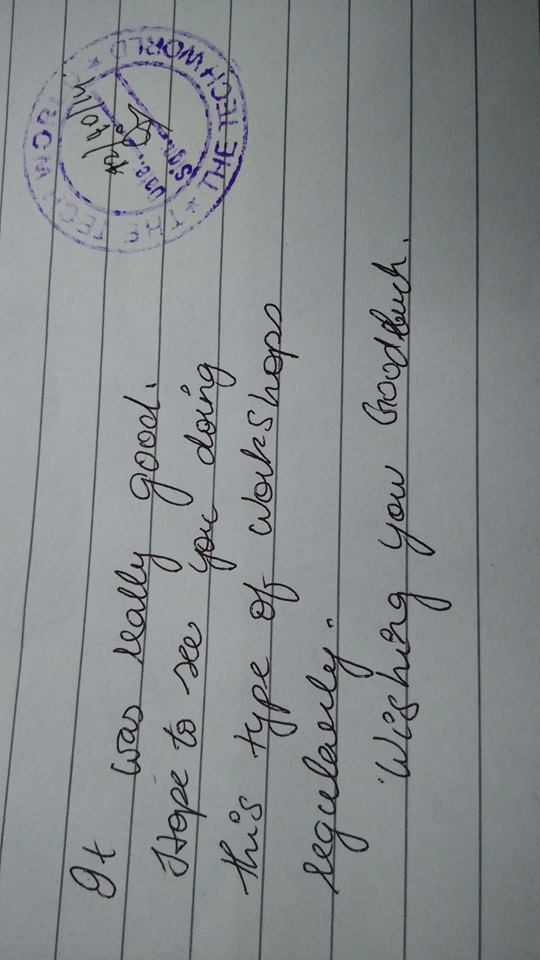 It was really good.
Hope to see you doing
this type of workshops
regularly.
Wishing you Good luck.
★ THE TECH WORLD ★ THE TECH WORLD
Sign.
Date.